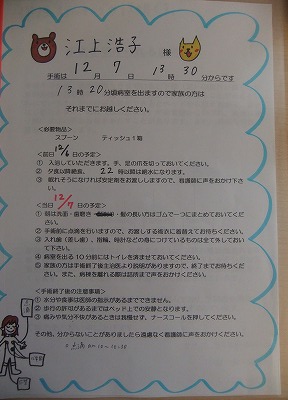 江上浩子 様
手術は 12月 7日 13時 30分からです
13時 20分頃病室を出ますので家族の方は
それまでにお越しください。
<必要物品>
スプーン ティッシュ1箱
<前日 12/6 日の予定>
① 入浴していただきます。手、足の爪を切っておいてください。
② 夕食以降絶食。 22 時以降は絶水になります。
③ 眠れそうになければ安定剤をお渡ししますので、看護師に声をおかけ下さい。
<当日 12/7 日の予定>
① 朝は洗面・歯磨き・髪の長い方はゴムで一つにまとめておいてください。
② 手術前に点滴を行いますので、お渡しする術衣に着替えてお待ちください。
③ 入れ歯(差し歯)、指輪、時計などの身につけているものは全て外しておいて下さい。
④ 病室を出る10分前にはトイレを済ませておいてください。
⑤ 家族の方は手術終了後主治医より説明がありますので、終了までお待ちください。また、病棟を離れる際は詰所まで声をおかけください。
<手術終了後の注意事項>
① 水分や食事は医師の指示があるまでできません。
② 歩行の許可があるまではベッド上での安静となります。
③ 痛みや気分不快があるときは我慢せず、ナースコールを押してください。
その他、分からないことがありましたら遠慮なく看護師に声をおかけください。
点滴 AM 10～10:30